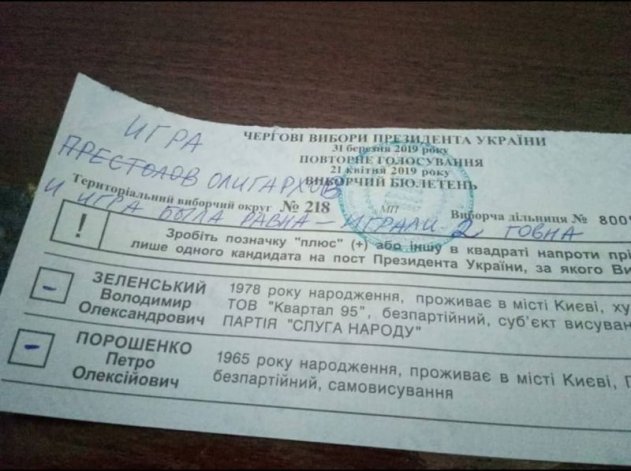 ИГРА
ЧЕРГОВІ ВИБОРИ ПРЕЗИДЕНТА УКРАЇНИ
31 березня 2019 року
ПРЕСТОЛОВ ОЛИГАРХОВ
ПОВТОРНЕ ГОЛОСУВАННЯ
21 квітня 2019 року
ВИБОРЧИЙ БЮЛЕТЕНЬ
Територіальний виборчий округ № 218
МП
Виборча дільниця № 800
И ИГРА БЫЛА РАВНА – ИГРАЛИ 2 ГОВНА
! Зробіть позначку "плюс" (+) або іншу в квадраті напроти прі
лише одного кандидата на пост Президента України, за якого Ви
ЗЕЛЕНСЬКИЙ
Володимир
Олександрович
1978 року народження, проживає в місті Києві, ху
ТОВ "Квартал 95", безпартійний, суб'єкт висуван
ПАРТІЯ "СЛУГА НАРОДУ"
ПОРОШЕНКО
Петро
Олексійович
1965 року народження, проживає в місті Києві,
безпартійний, самовисування